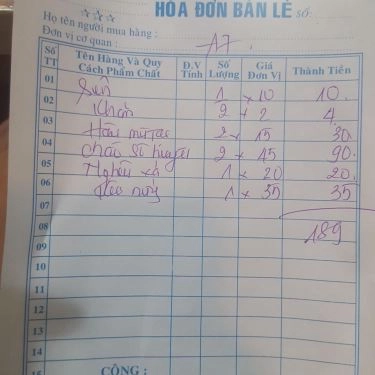 HÓA ĐƠN BÁN LẺ Số:
Họ tên người mua hàng :
Đơn vị cơ quan : A7
Số TT Tên Hàng Và Quy Cách Phẩm Chất Đ.V Tính Số Lượng Giá Đơn Vị Thành Tiền
01 1 x 10 10.
02 Khăn 2 x 2 4
03 2 x 15 30.
04 Cháo sò huyết 2 x 45 90.
05 Nghêu xả 1 x 20 20.
06 1 x 35 35
07
08 189
09
10
11
12
13
14
15
CỘNG :